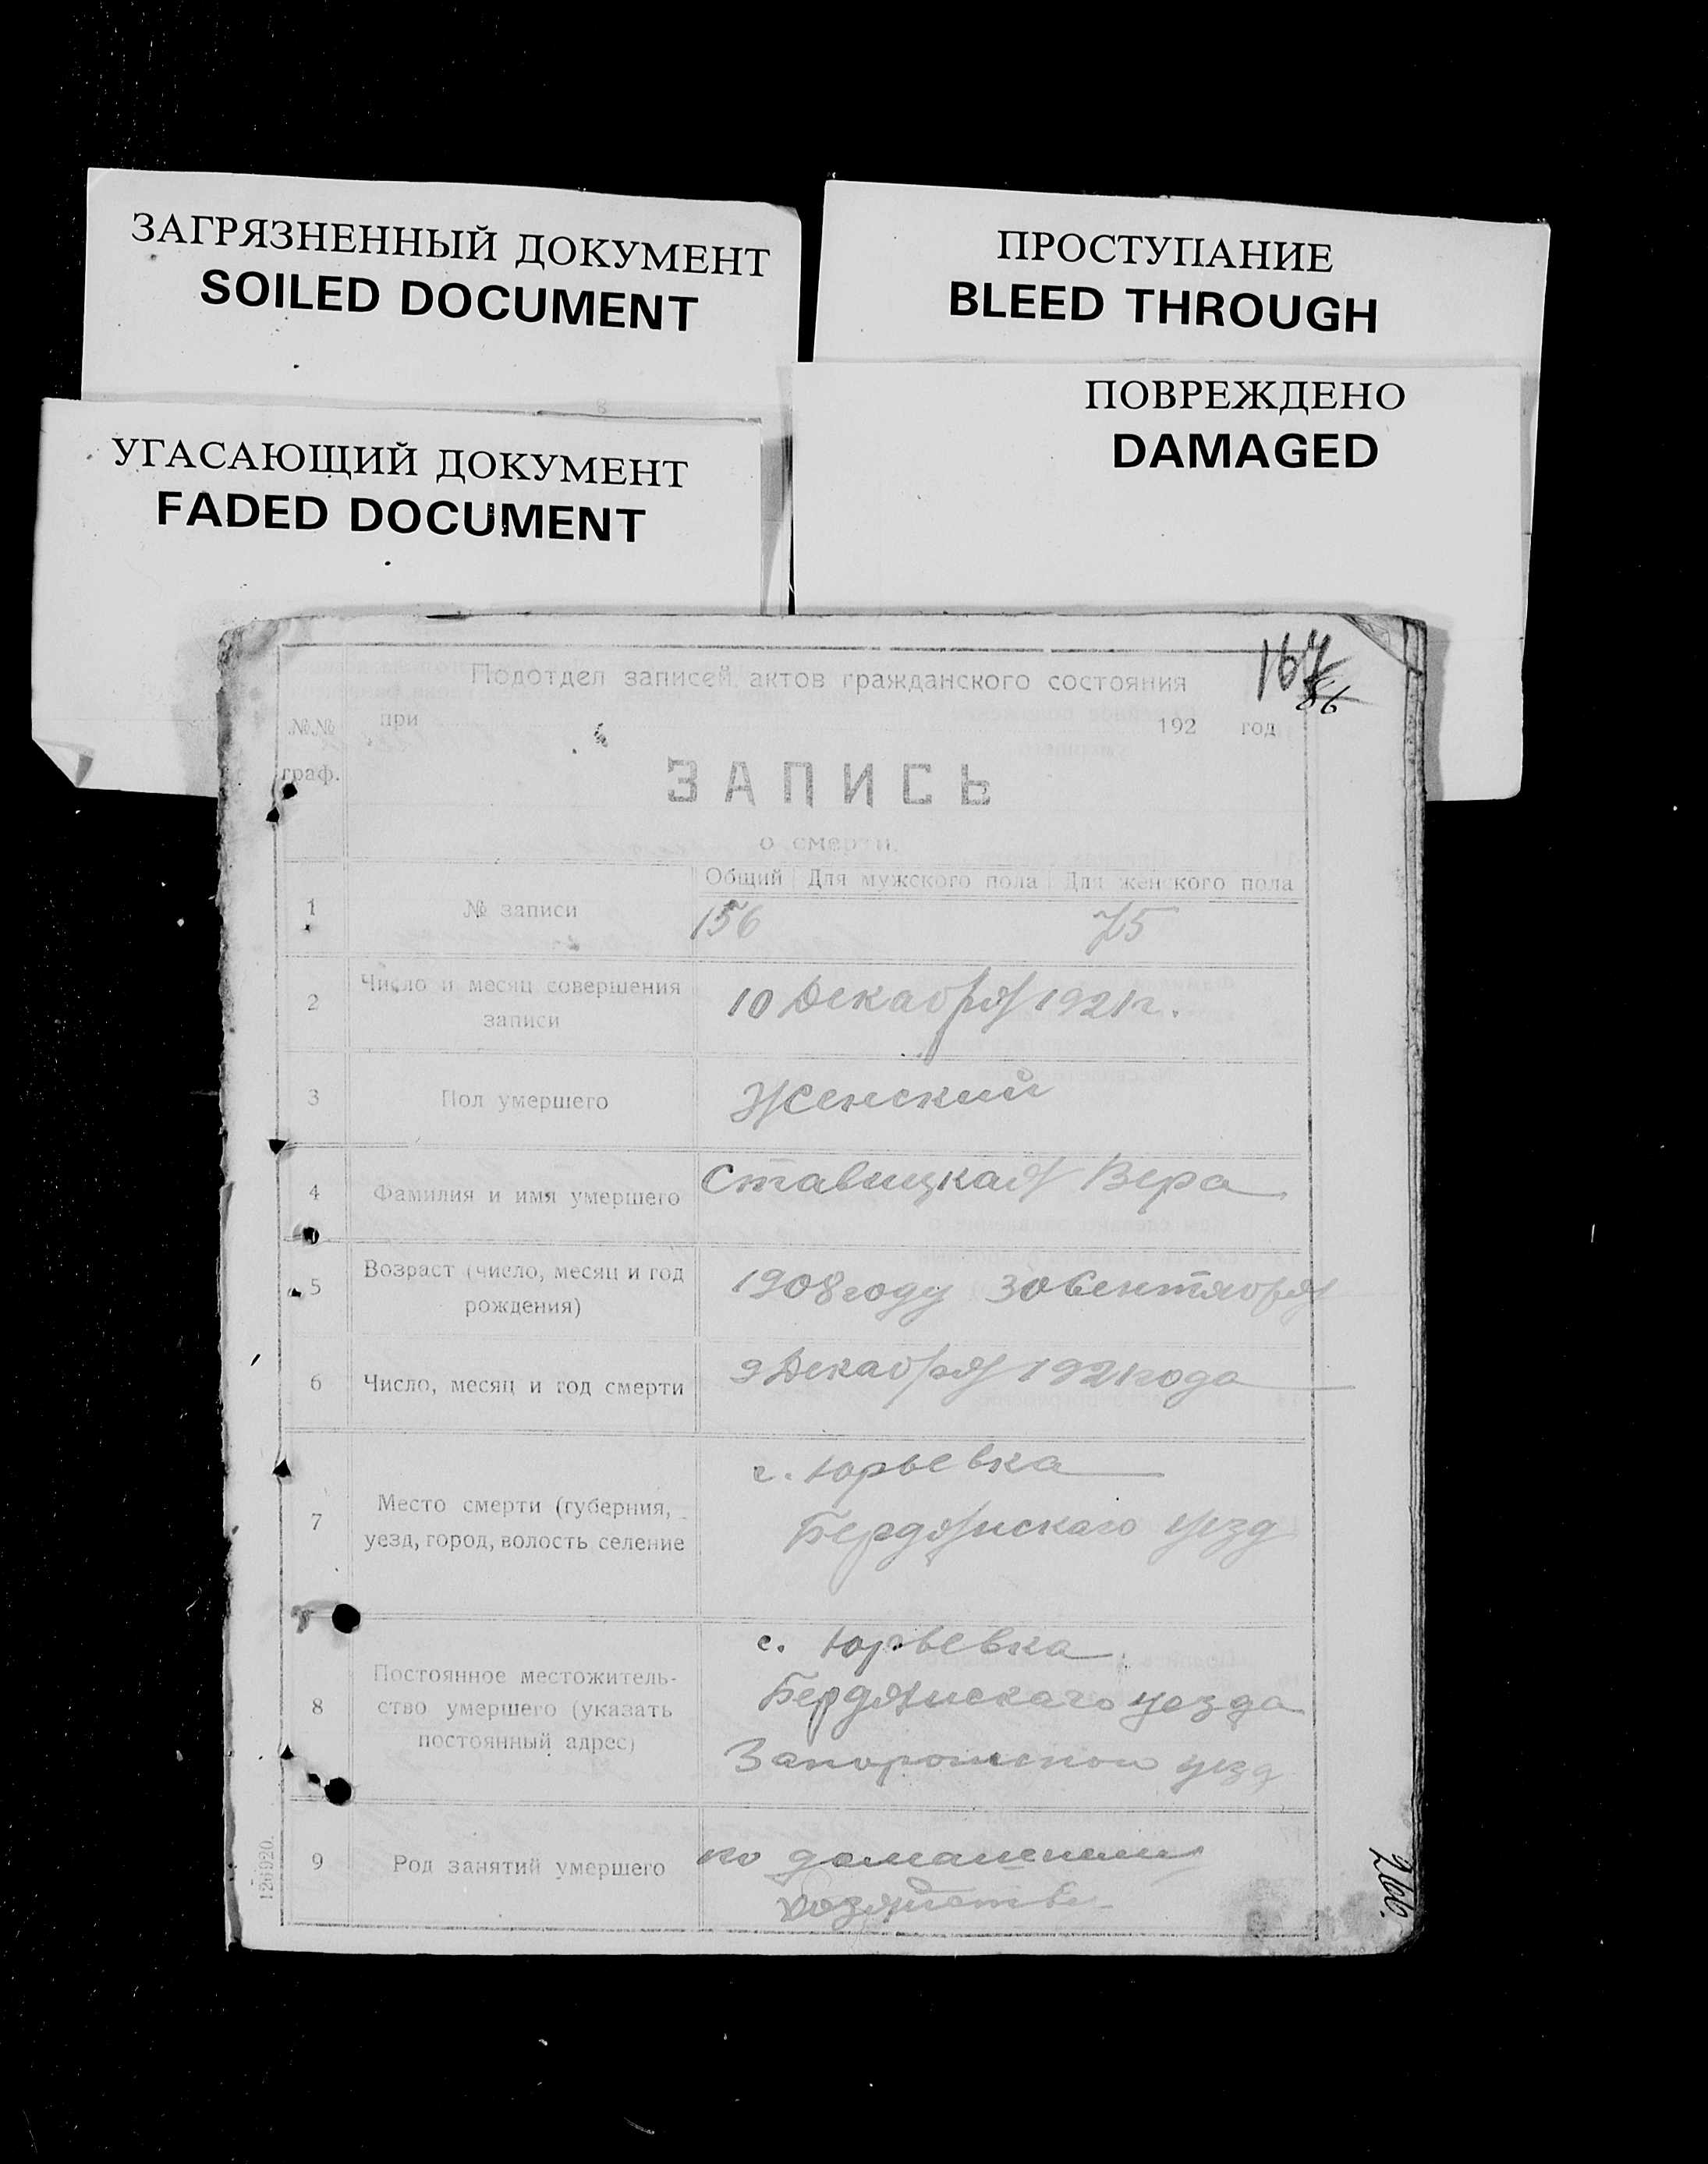 ЗАГРЯЗНЕННЫЙ ДОКУМЕНТ
SOILED DOCUMENT
ПРОСТУПАНИЕ
BLEED THROUGH
УГАСАЮЩИЙ ДОКУМЕНТ
FADED DOCUMENT
ПОВРЕЖДЕНО
DAMAGED
Подотдел записей актов гражданского состояния
при 192 год
№№
граф.
ЗАПИСЬ
о смерти.
Общий Для мужского пола Для женского пола
1 № записи 156 75
2 Число и месяц совершения
записи
10 Декабря 1921 г.
3 Пол умершего Женский
4 Фамилия и имя умершего Ставицкая Вера
5 Возраст (число, месяц и год
рождения)
1908 году 30 Сентября
6 Число, месяц и год смерти 9 Декабря 1921 года
7 Место смерти (губерния,
уезд, город, волость селение
с. Юрьевка
Бердянскаго уезд
8 Постоянное местожитель-
ство умершего (указать
постоянный адрес)
с. Юрьевка
Бердянскаго уезда
уезд
9 Род занятий умершего
по
126920.
266.